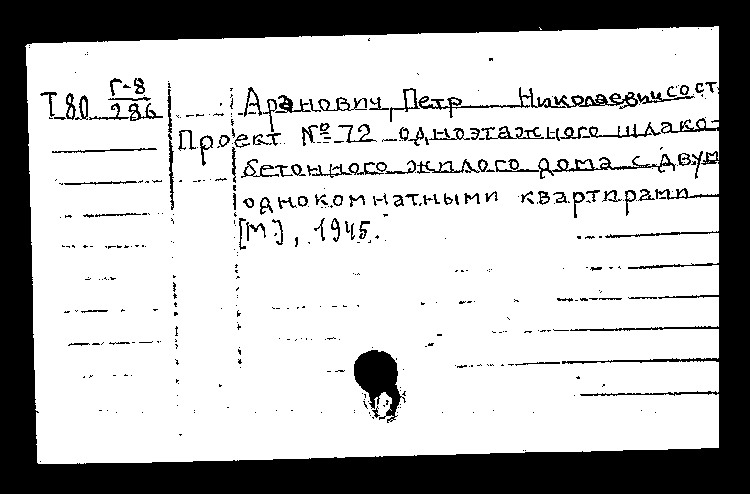 Т80 Г-8/286
Аранович, Петр Николаевич сост.
Проект № 72 одноэтажного шлако-
бетонного жилого дома с двум
однокомнатными квартирами
[М], 1945.